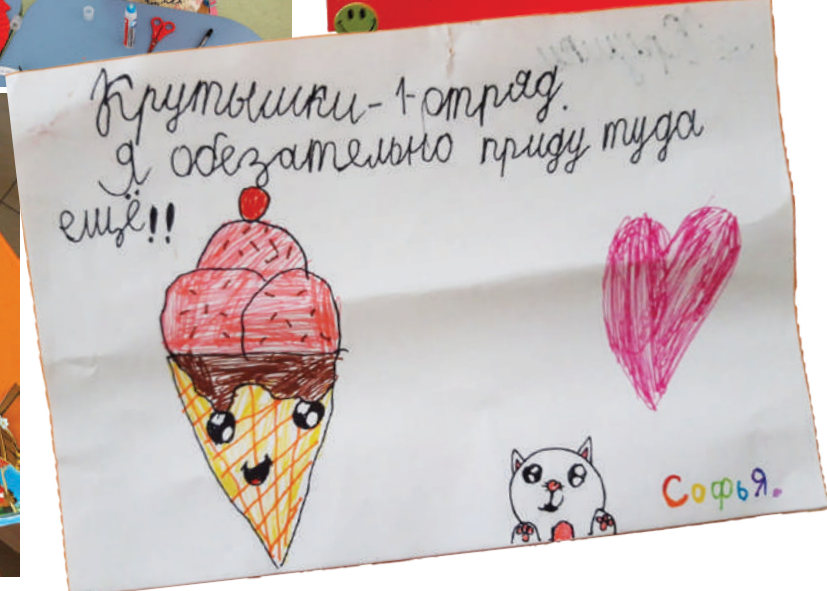 Крутышки - 1 отряд.
Я обезательно приду туда
ещё!!
Софья.